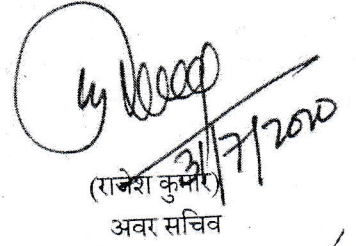 3/7/2020
(राजेश कुमार)
अवर सचिव